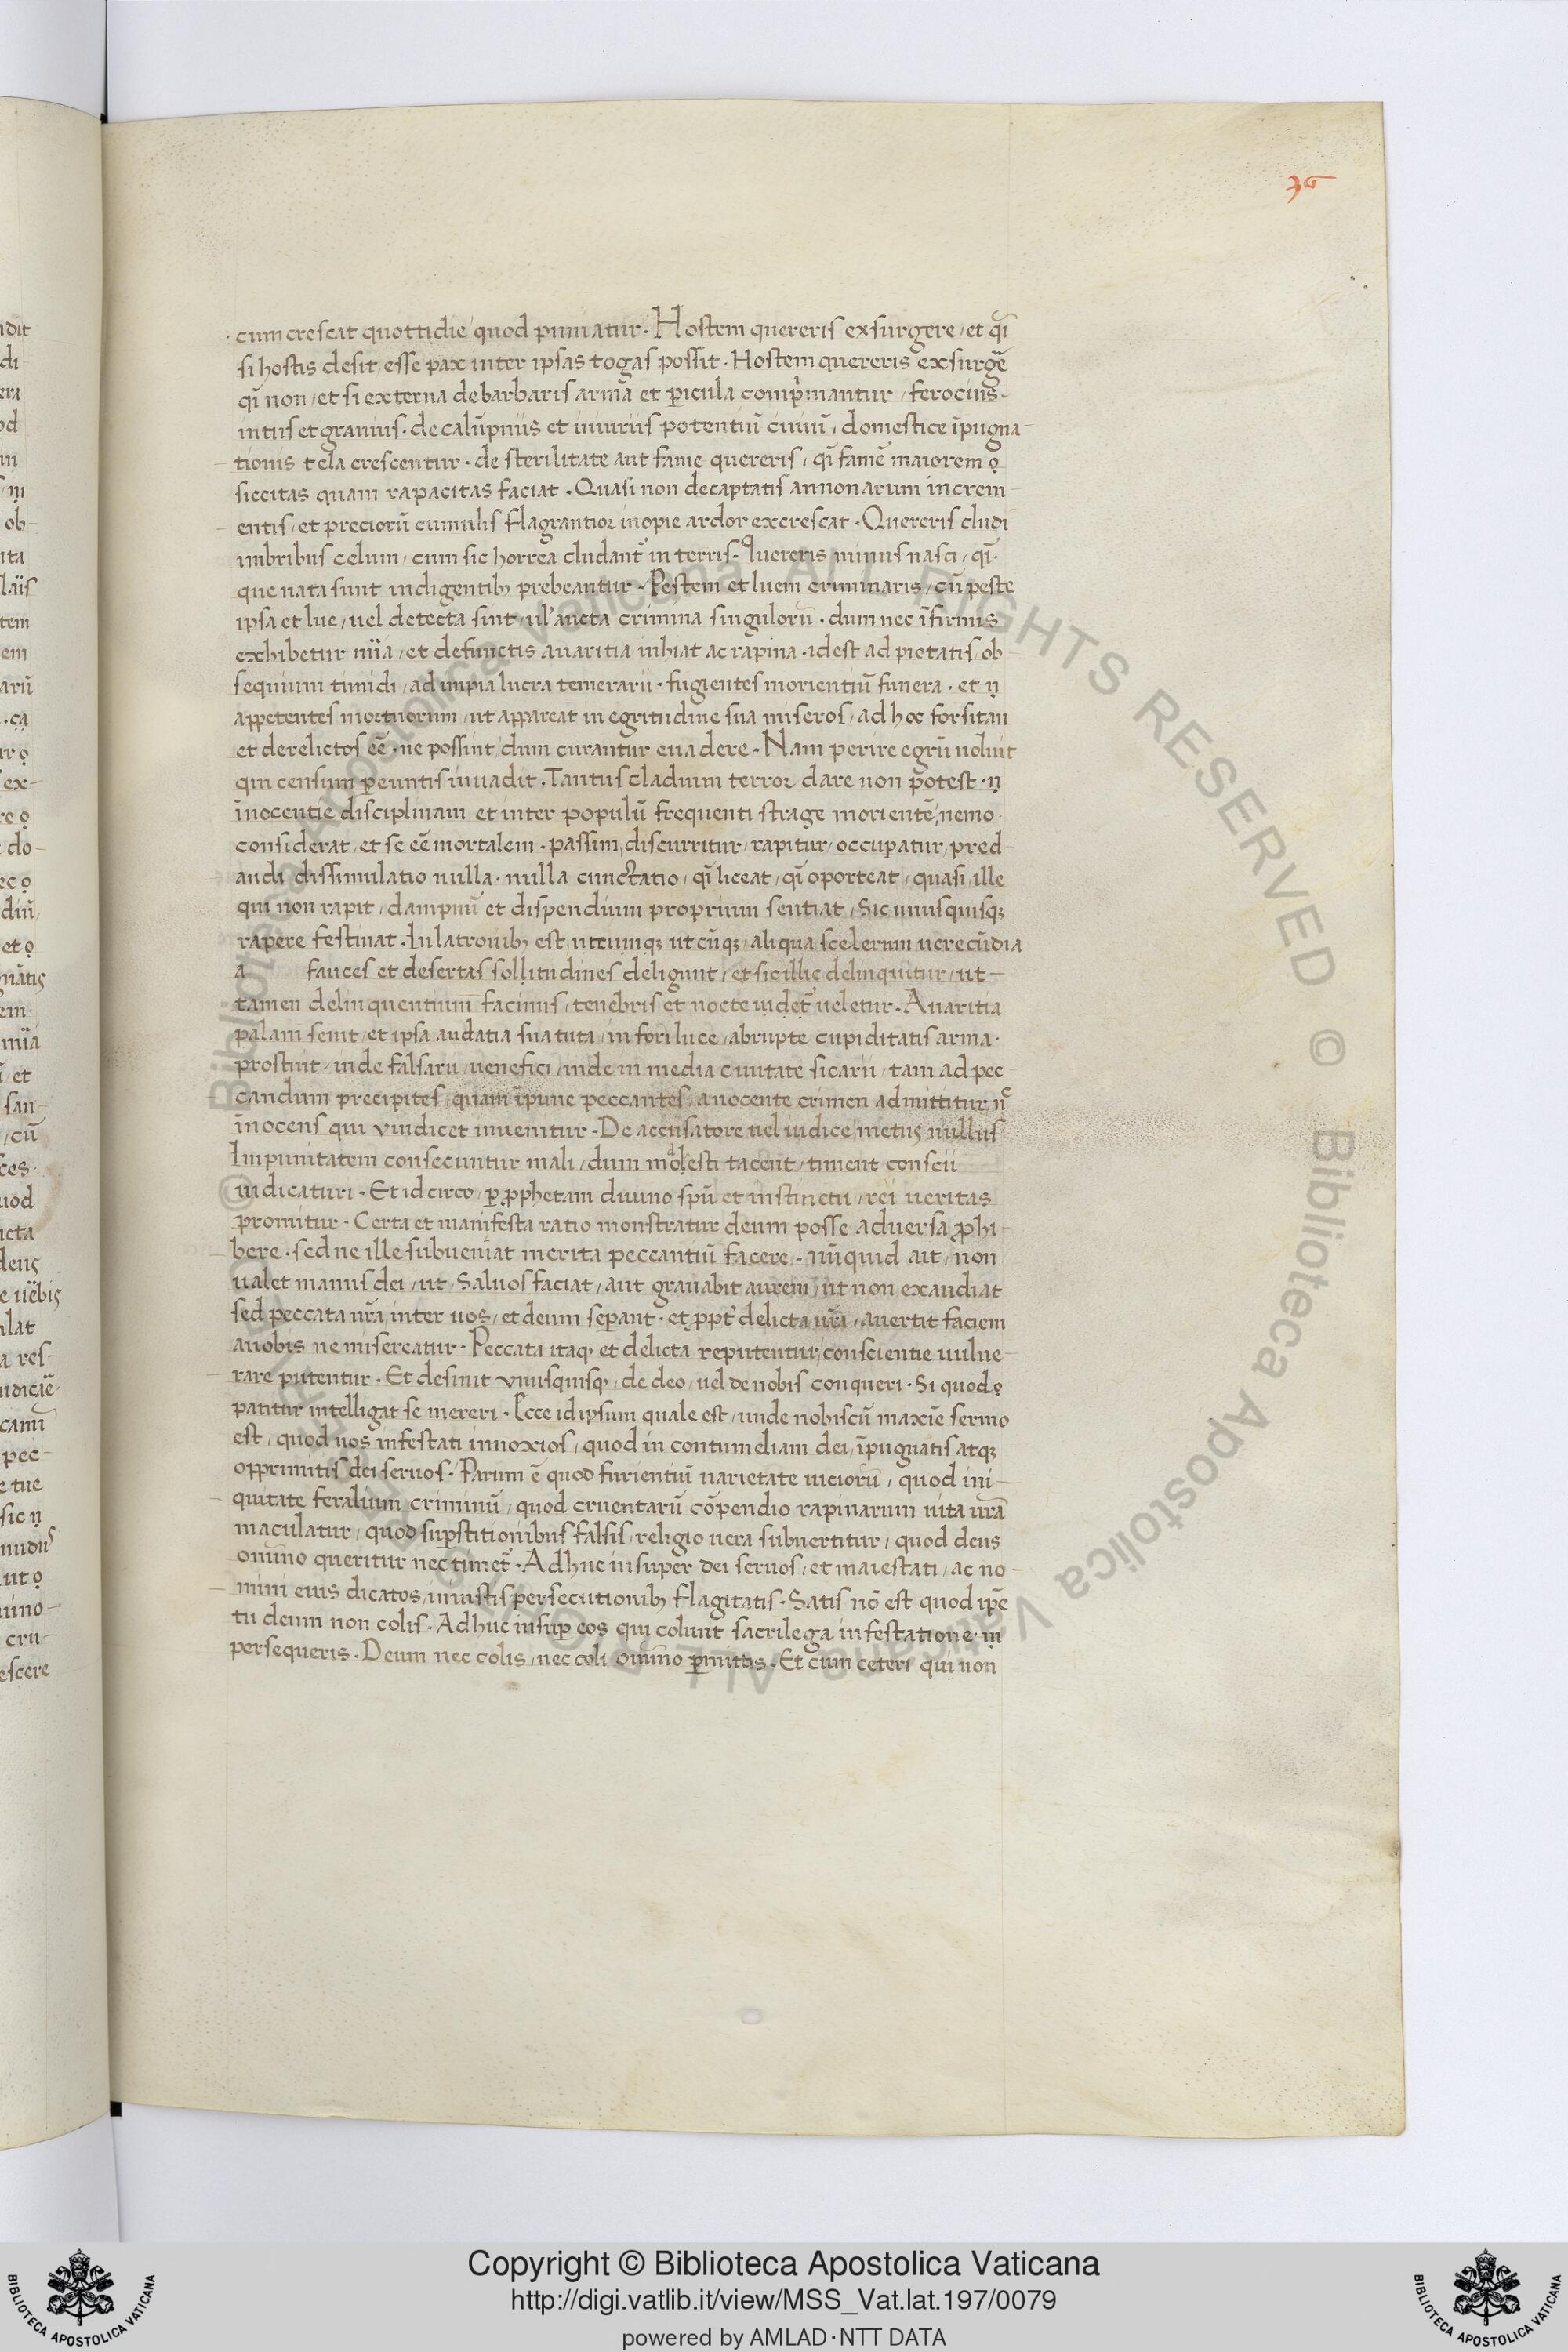 36
cum crescat quottidie quod puniatur. Hostem quereris exsurgere, et qͣsi
si hostis desit, esse pax inter ipsas togas possit. Hostem quereris exsurgē
qͣsi non, et si externa de barbaris arma et pericula comprimantur, ferocius.
intus et gravius. de calūpniis et iniuriis potentiū civiū, domestice īpugna-
tionis tela crescentur. de sterilitate aut fame quereris, qͣsi famē maiorem
siccitas quam rapacitas faciat. Quasi non de captatis annonarum increm-
entis, et preciorū cumulis flagrantior inopie ardor excrescat. Quereris cludi
imbribus celum, cum sic horrea cludant̃ in terris. quereris minus nasci, qͣsi.
que nata sunt indigentib; prebeantur. Pestem et luem criminaris, cū peste
ipsa et lue, uel detecta sint, ul' aucta crimina singulorū. dum nec īfirmis
exhibetur mīa, et defunctis avaritia inhiat ac rapina. idest ad pietatis ob-
sequium timidi, ad impia lucra temerarii. fugientes morientiū funera. et
appetentes mortuorum, ut appareat in egritudine sua miseros, ad hoc forsitan
et derelictos eē. ne possint, dum curantur evadere. Nam perire egrū voluit
qui censum pereuntis invadit. Tantus cladium terror dare non potest.
īnocentie disciplinam et inter populū frequenti strage morientē, nemo.
considerat, et se eē mortalem. passim, discurritur, rapitur, occupatur, pred-
andi dissimulatio nulla. nulla cunctatio, qͣsi liceat, qͣsi oporteat, quasi ille
qui non rapit, dampnū et dispendium proprium sentiat, Sic unusquisq;
rapere festinat. In latronib; est utcumq; ut cūq;, aliqua scelerum verecūdia
a fauces et desertas sollitudines deligunt, et sic illic delinquitur, ut-
tamen delinquentium facinus, tenebris et nocte veletur. Avaritia
palam sevit, et ipsa audatia sua tuta, in fori luce, abrupte cupiditatis arma.
prostint, inde falsarii, venefici, inde in media civitate sicarii, tam ad pec-
candum precipites, quam īpune peccantes, a nocente crimen admittitur,
īnocens qui vindicet invenitur. De accusatore vel iudice, metus nullus
Impunitatem consecuntur mali, dum modesti tacent, timent conscii
iudicaturi. Et id circo, p prophetam divino spū et instinctu, rei veritas
promitur. Certa et manifesta ratio monstratur deum posse adversa prohi-
bere. sed ne ille subveniat merita peccantiū facere. nūquid ait, non
valet manus dei, ut, Salvos faciat, aut gravabit aurem, ut non exaudiat
sed peccata vrā, inter vos, et deum separant. et ppt̃ delicta vrā, avertit faciem
a vobis ne misereatur. Peccata itaq; et delicta reputentur, conscientie vulne-
rare putentur. Et desinit Vnusquisq;, de deo, vel de nobis conqueri. Si quod
patitur intelligat se mereri. Ecce id ipsum quale est, unde nobiscū maxīe sermo
est, quod nos infestati innoxios, quod in contumeliam dei, īpugnatis atq;
opprimitis dei servos. Parum ē quod furientiū varietate viciorū, quod ini-
quitate feralium criminū, quod cruentarū cōpendio rapinarum vita vrā
maculatur, quod supstitionibus falsis, religio vera subvertitur, quod deus
omīno queritur nec timet̃. Adhuc insuper dei servos, et maiestati, ac no-
mini eius dicatos, iniustis persecutionib; flagitatis. Satis nō est quod ipē
tu deum non colis. Adhuc insup eos qui colunt sacrilega infestatione.
persequeris. Deum nec colis, nec coli omīno pmittis. Et cum ceteri qui non
Copyright © Biblioteca Apostolica Vaticana
http://digi.vatlib.it/view/MSS_Vat.lat.197/0079
powered by AMLAD·NTT DATA
BIBLIOTECA APOSTOLICA VATICANA
BIBLIOTECA APOSTOLICA VATICANA